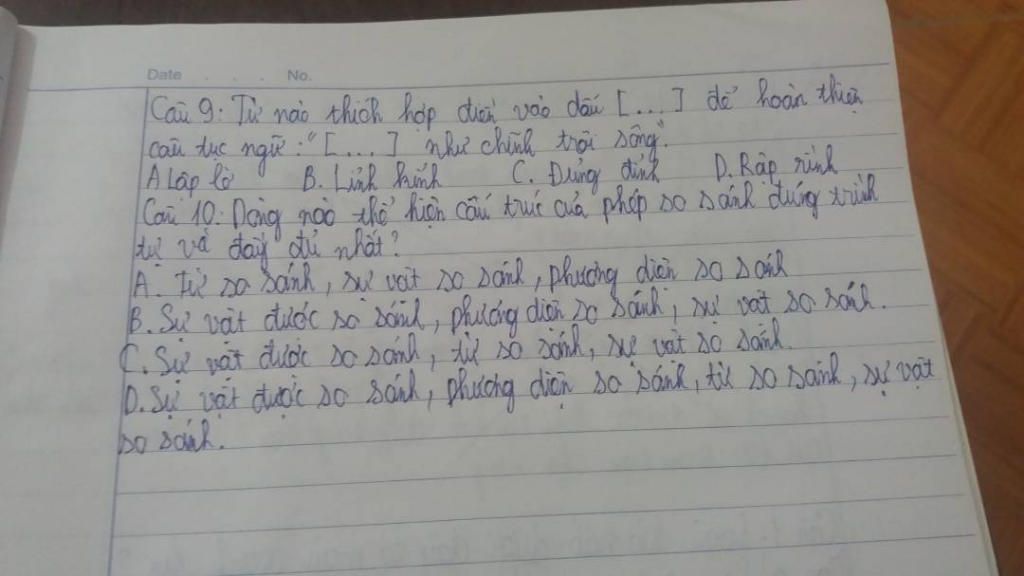 Date . . . No.
Câu 9: Từ nào thích hợp điền vào dấu [...] để hoàn thiện
câu tục ngữ: "[...] như chĩnh trôi sông".
A Lập lờ B. Linh kính C. Đủng đỉnh D. Rập rình
Câu 10: Dòng nào thể hiện cấu trúc của phép so sánh đúng trình
tự và đầy đủ nhất?
A. Từ so sánh, sự vật so sánh, phương diện so sánh
B. Sự vật được so sánh, phương diện so sánh, sự vật so sánh.
C. Sự vật được so sánh, từ so sánh, sự vật so sánh.
D. Sự vật được so sánh, phương diện so sánh, từ so sánh, sự vật
so sánh.